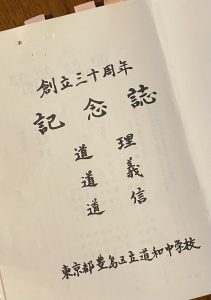 創立三十周年
記念誌
道理
道義
道信
東京都豊島区立道和中学校